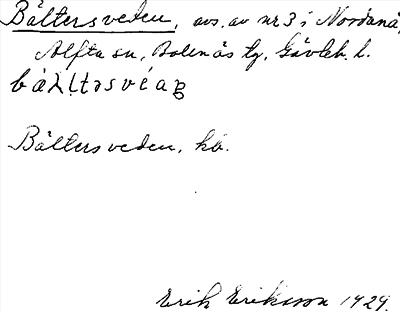 Bältersveden, avs. av nr 3 i Nordanå,
Alfta sn, Bollnäs tg, Gävleb. l.
Bältersveden, hb.
Erik Eriksson 1929.